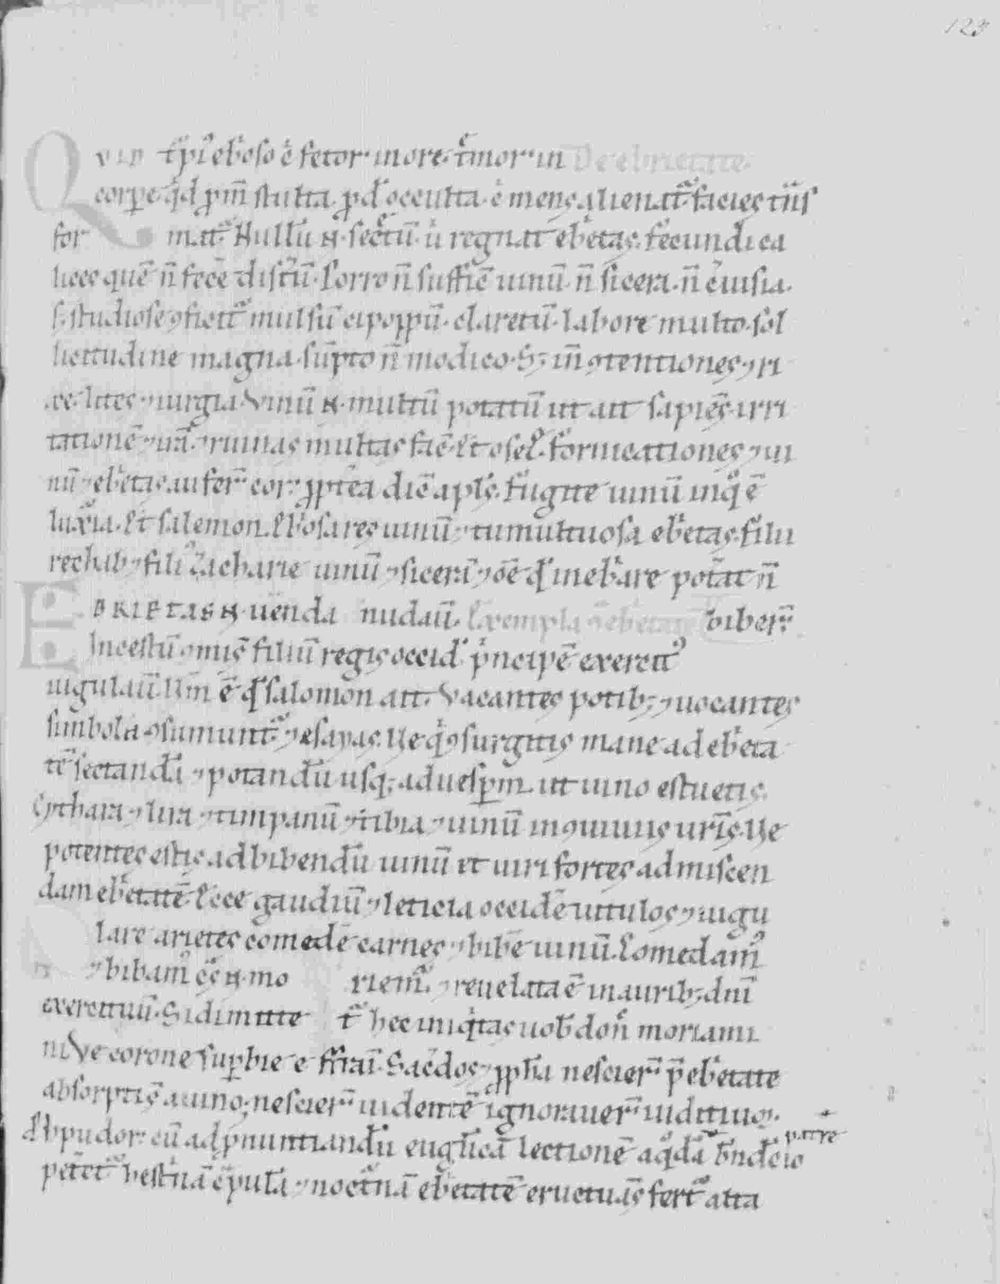 123
QVID t̄pi9 eb'oso ē fetor in ore. t̄mor in De ebrietate.
corpe q̇d p̄m̄ stulta. p̄d' occulta. ē mens alienat̄. facies t̄ns
for mat̄. Nullū n. sec̄tū. u̇ regnat eb'etas. fecundi ca
lices quē n̄ fecē disc̄tū. Porro n̄ suffic̄ uinū. n̄ sicera. n̄ c̄uisia.
s. studiose 9ficit̄ mulsū. ci popp̄ū. claretū. labore multo. sol
licitudine magna. sūpto n̄ modico. S; in̄ 9tentiones 7 ri
xe. lites 7 iurgia. Vinū n. multū potatū ut ait sapiēs. irri
tationē 7 irā. 7 ruinas multas fac̄. Et osee. fornicationes 7 ui
nū 7 eb'etas aufer̄ cor. p̄pt̄ea dic̄ apl's. Fugite uinū in q̇ ē
luxīa. Et salemon. Lb'osa res uinū 7 tumultuosa eb'etas. filii
rechab 7 fili9 zacharie uinū 7 sicerā 7 oē qd' inebr̄are potāt n̄
EBRIETAS n. uēnda nudauī. Exempla 9̄ eb'etatē biber̄.
Incestū 9misē filiū regis occid' p̄ncipē exercit9
iugulauī. Um̄ ē qd' salomon ait. Vacantes potib; 7 uocantes
simbola 9sumunt̄. 7 esayas. Ue q̇ 9surgitis mane ad eb'eta
tē sectandā 7 potandū usq; ad uesp̄m. ut uino estuetis.
Cythara 7 lira 7 timpanū 7 tibia 7 uinū in 9uiuiis ur̄is. Ue
potentes estis ad bibendū uinū et uiri fortes ad miscen
dam eb'etatē. Ecce gaudiū 7 leticia occidē uitulos 7 iugu
lare arietes comedē carnes 7 bibē uinū. Comedam9
7 bibam9 c̄s n. mo riem̄. 7 reuelata ē in aurib; dn̄i
exercituū. Si dimitte t̄ hec iniq̇tas uob' don̄ moriami
ni. Ve corone sup̄bie e ffraī. Sac̄dos 7 p̄ph'a nescier̄ p̄ eb'etate
absorpti s̄ a uino; nescier̄ uidentē ignorauer̄ iuditiuꝫ.
Ah' pudor. cū ad p̄nuntiandū eugl'icā lectionē a q̇dā b'nd'c̄io patre
petēt̄ hest̄nā c̄pulā 7 noct̄nā eb'etatē eructuās fert̄ alta